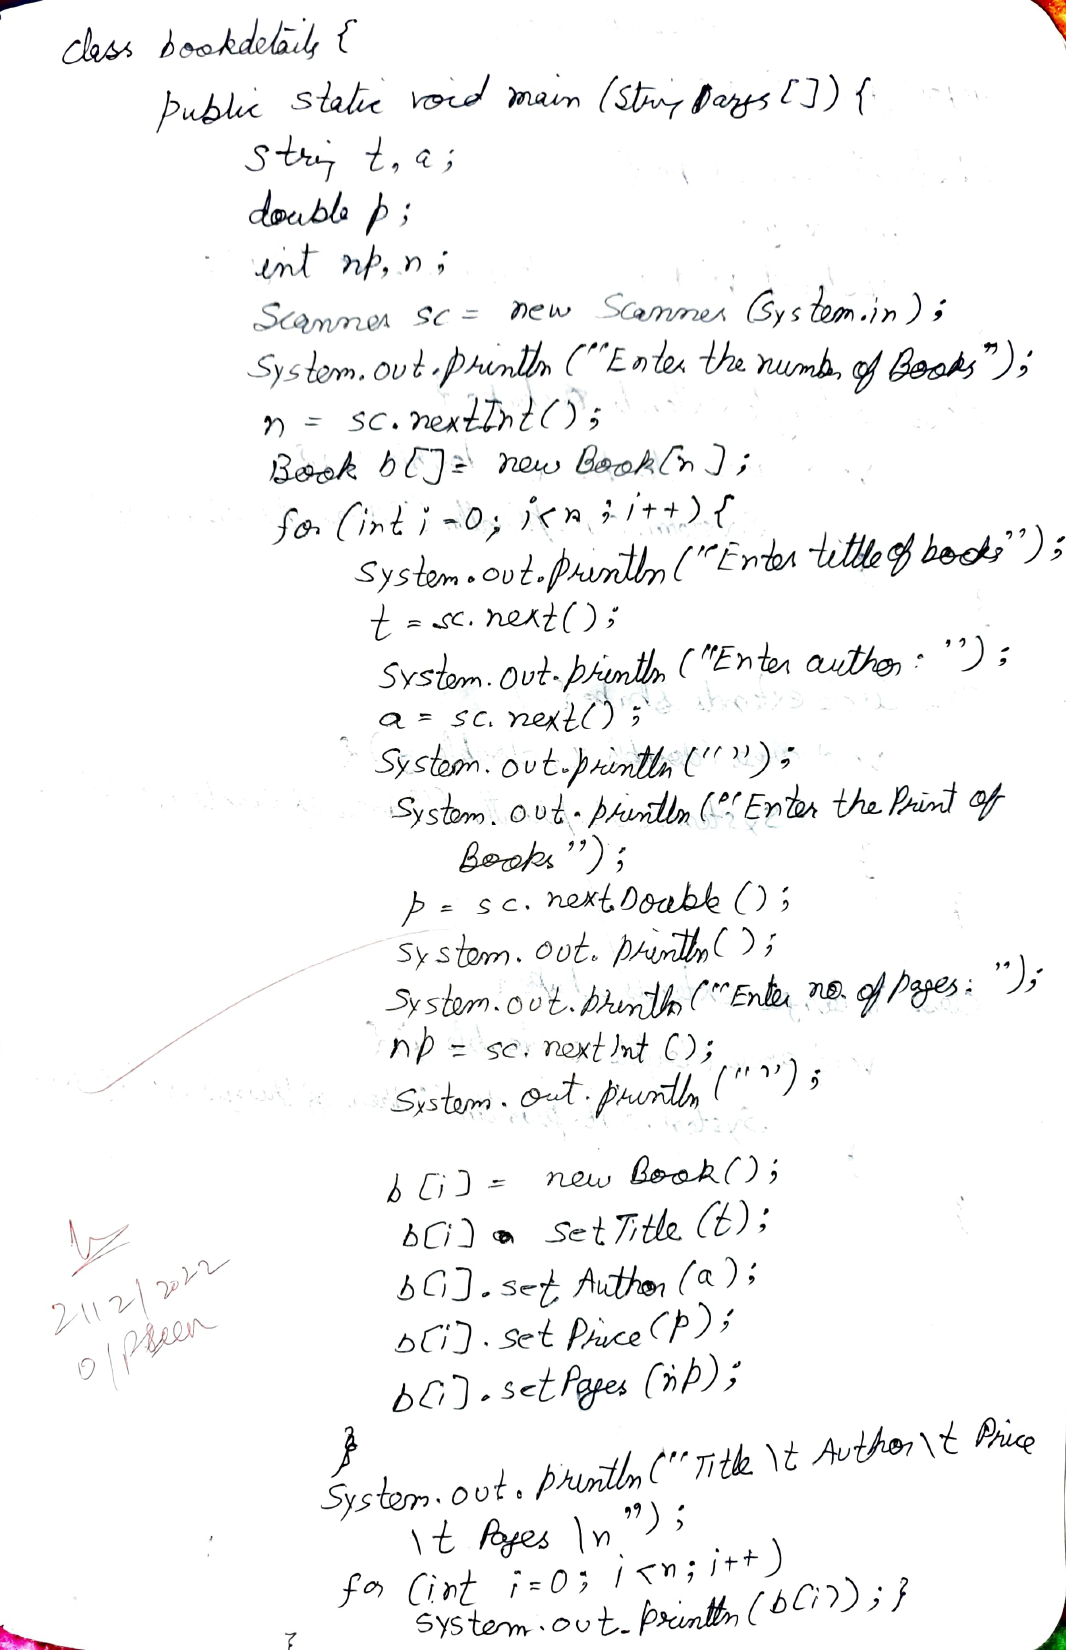 class bookdetails {
public static void main (String args []) {
string t, a;
double p;
int np, n;
Scanner sc = new Scanner (System.in);
System.out.println ("Enter the number of Books");
n = sc.nextInt();
Book b[] = new Book[n];
for (int i=0; i<n; i++) {
System.out.println ("Enter tittle of books");
t = sc.next();
System.out.println ("Enter author: ");
a = sc.next();
System.out.println ("");
System.out.println ("Enter the Print of
Books");
p = sc.nextDouble ();
System.out.println();
System.out.println ("Enter no. of pages: ");
np = sc.nextInt ();
System.out.println ("");
b[i] = new Book();
b[i] . setTitle (t);
b[i].set Author (a);
b[i].set Price (p);
b[i].setPages (np);
}
System.out.println ("Title \t Author \t Price
\t Pages \n");
for (int i=0; i<n; i++)
System.out.println (b[i]); }
}
2112/2022
o/p seen